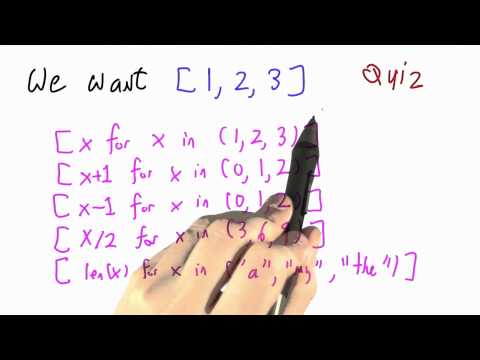 We want [1, 2, 3] Quiz
[x for x in (1, 2, 3) ]
[x+1 for x in (0, 1, 2) ]
[x-1 for x in (0, 1, 2) ]
[x/2 for x in (3, 6, ]
[len(x) for x in "a", , "the")]